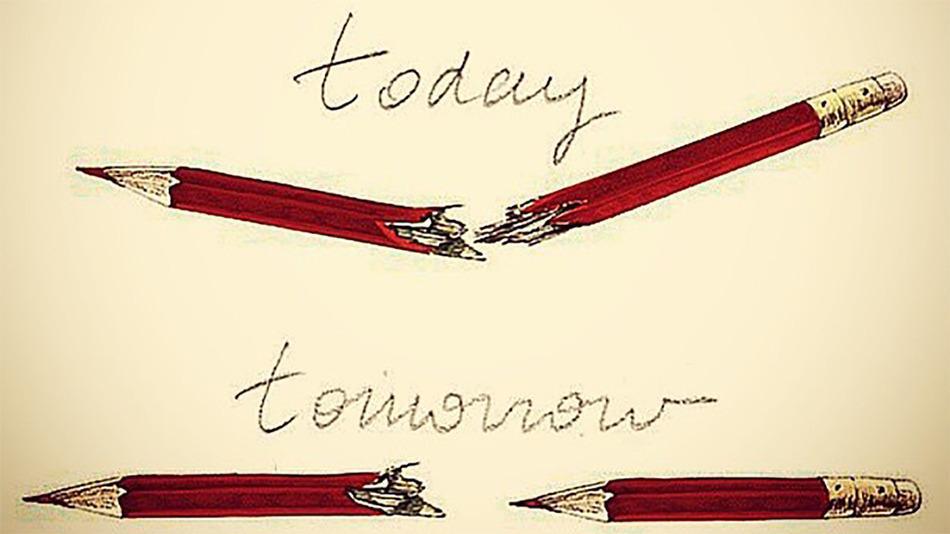 today
tomorrow